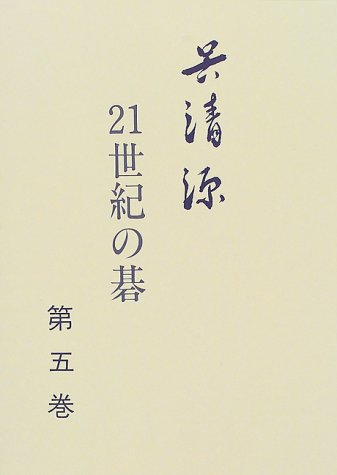 呉清源
21世紀の碁
第五巻